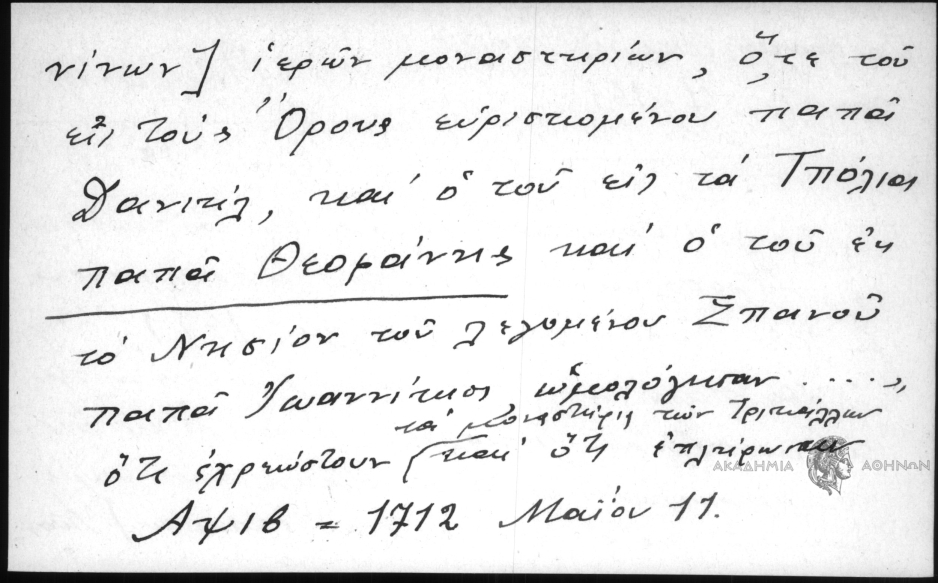 νίνων] ἱερῶν μοναστηρίων, ὅτε τοῦ
εἰς τοὺς Ὄρους εὑρισκομένου παπᾶ
Δανιήλ, καὶ ὁ τοῦ εἰς τὰ
παπᾶ Θεοφάνης καὶ ὁ τοῦ ἐκ
τὸ Νησίον τοῦ λεγομένου Σπανοῦ
παπᾶ Ἰωαννίκιος, ὡμολόγησαν ....,
τὰ μοναστήρια τῶν
ὅτι ἐχρεώστουν (καὶ ὅτι ἐπλήρωσαν
ΑΚΑΔΗΜΙΑ ΑΘΗΝΩΝ
Αψιβ = 1712 Μαΐου 11.